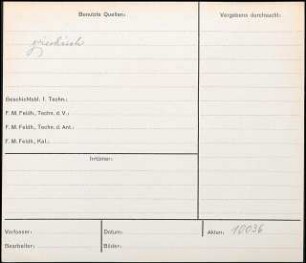 Benutzte Quellen:
Vergebens durchsucht:
griechisch
Geschichtsbl. f. Techn.:
F. M. Feldh., Techn. d. V.:
F. M. Feldh., Techn. d. Ant.:
F. M. Feldh., Kal.:
Irrtümer:
Verfasser:
Datum:
Akten: 10036
Bearbeiter:
Bilder: